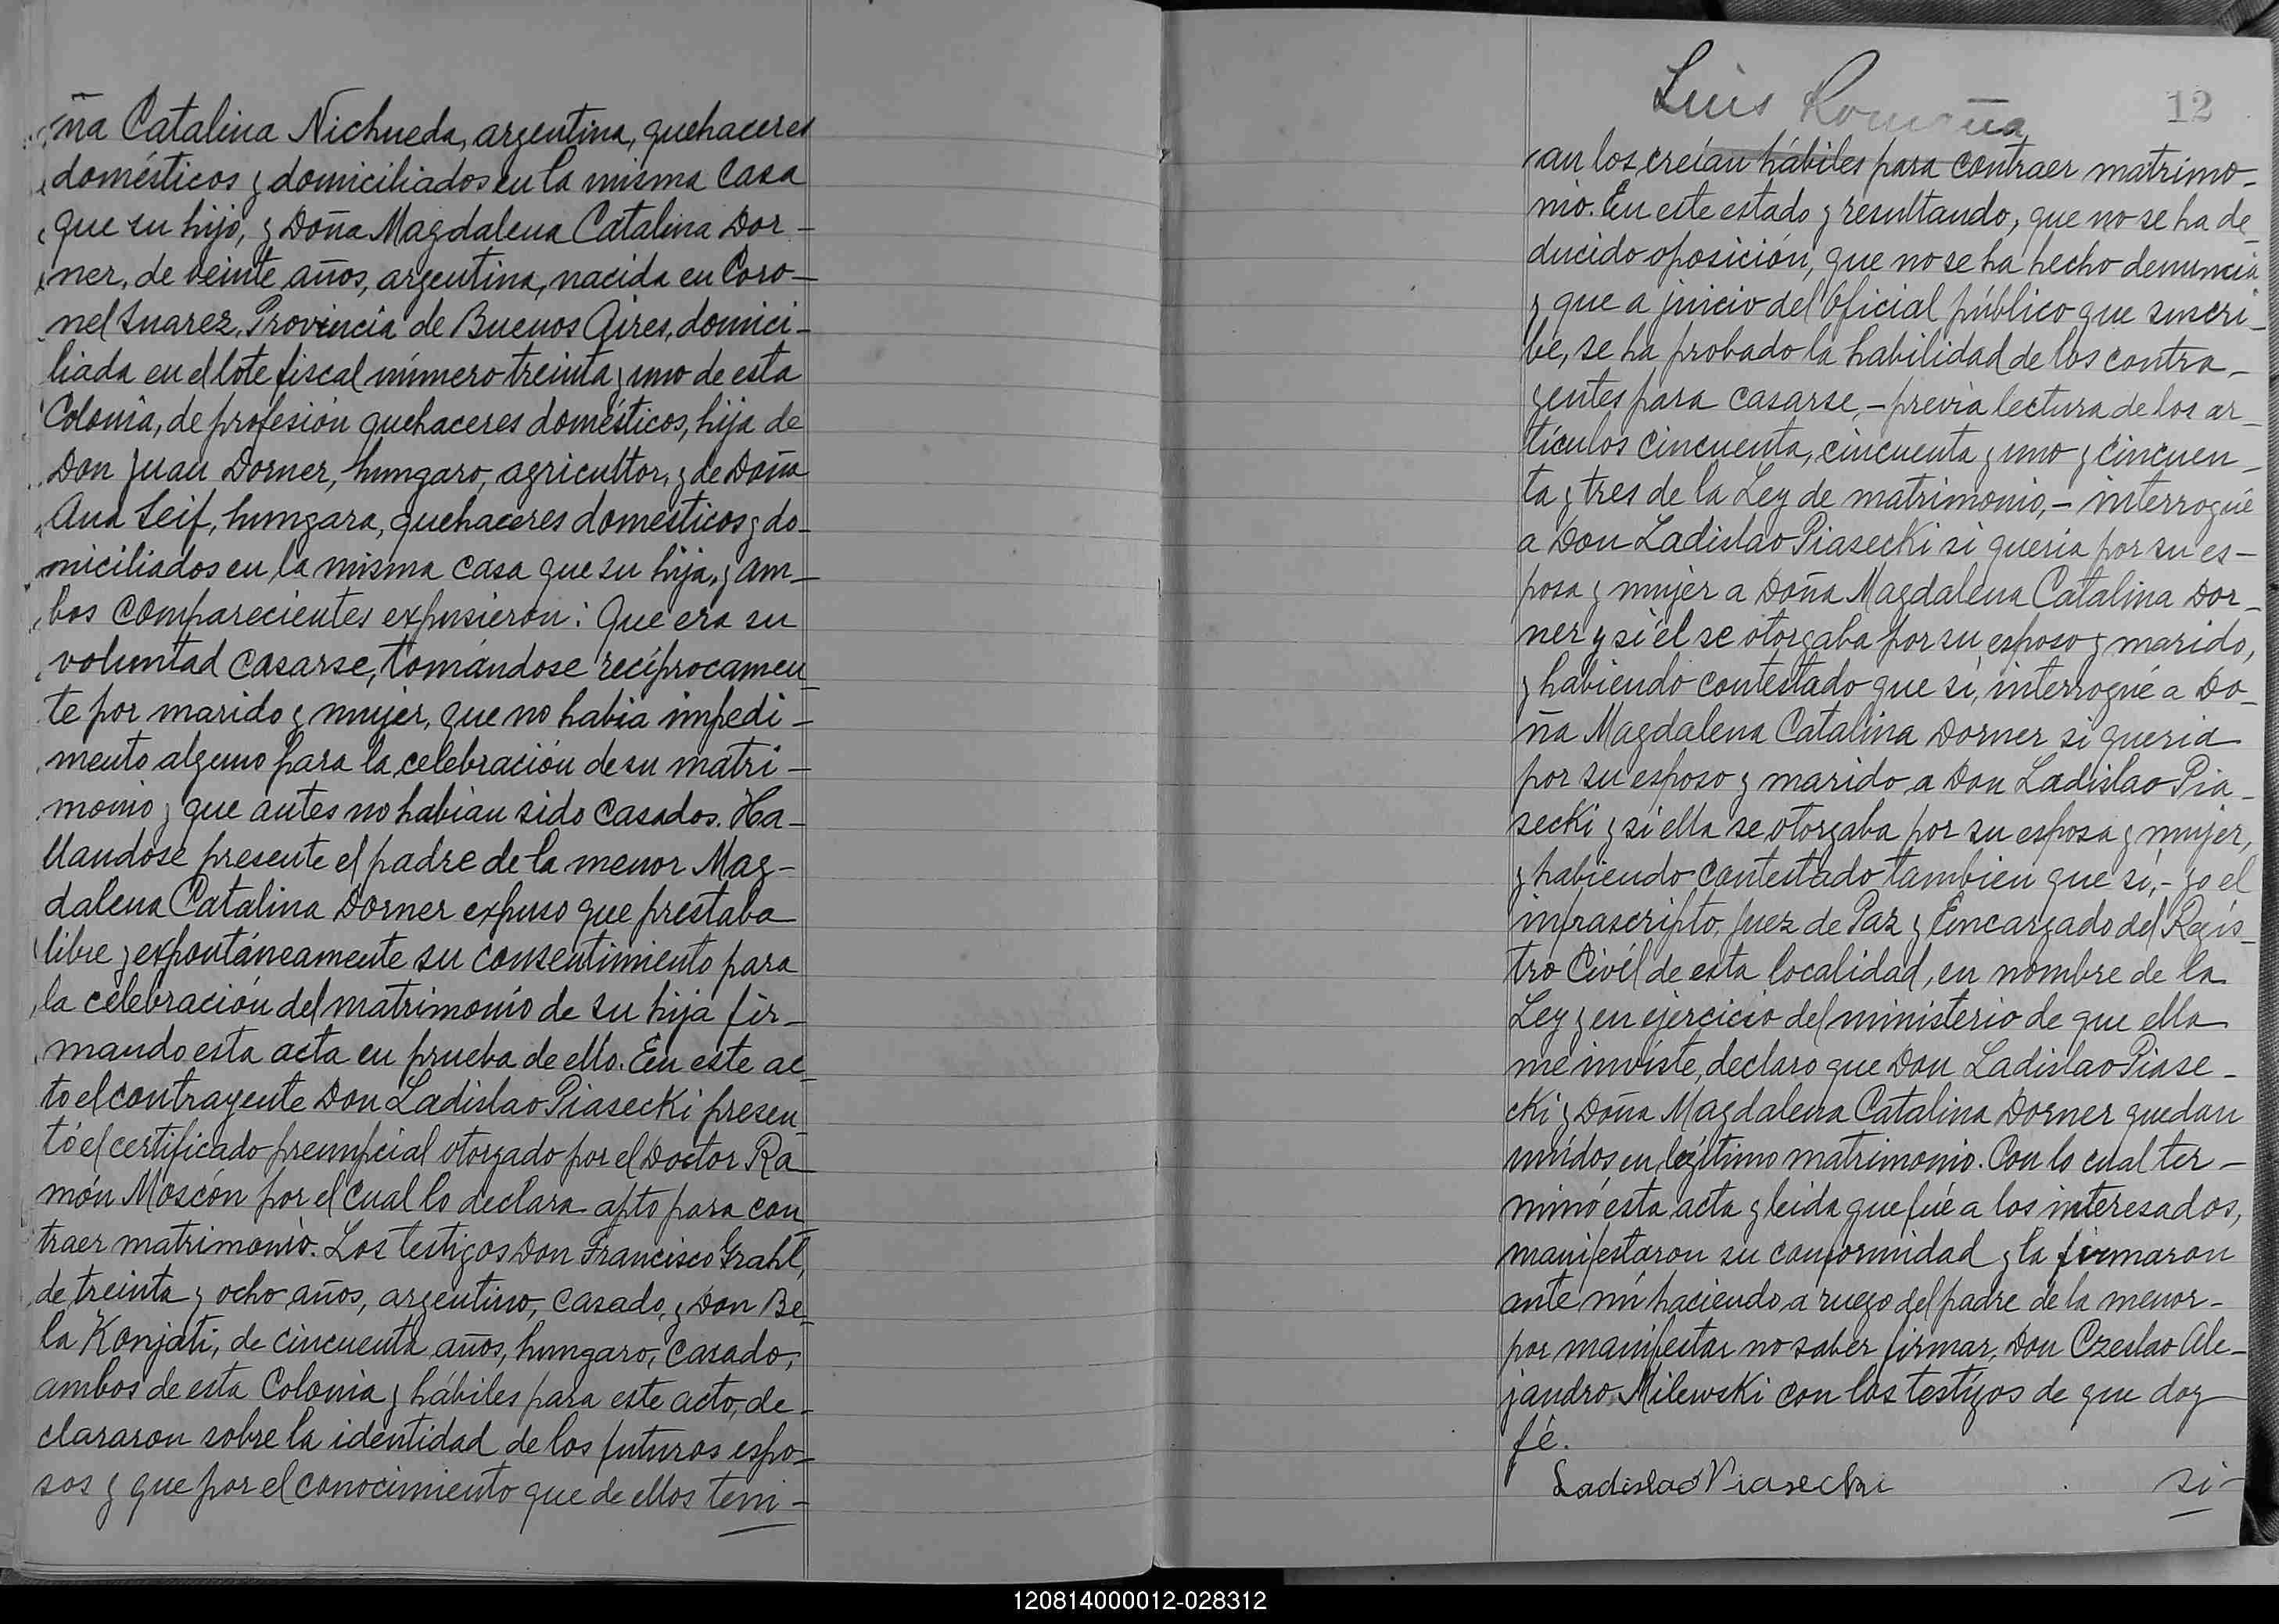 ña Catalina Nichueda, argentina, quehaceres
domésticos y domiciliados en la misma casa
que su hijo, y Doña Magdalena Catalina Dor-
ner, de veinte años, argentina, nacida en Coro-
nel Suarez, Provincia de Buenos Aires, domici-
liada en el lote fiscal número treinta y uno de esta
Colonia, de profesión quehaceres domésticos, hija de
Don Juan Dorner, hungaro, agricultor, y de Doña
Ana Seif, hungara, quehaceres domesticos y do-
miciliados en la misma casa que su hija, y am-
bos comparecientes expusieron: Que era su
voluntad casarse, tomándose recíprocamen-
te por marido y mujer, que no habia impedi-
mento alguno para la celebración de su matri-
monio y que antes no habían sido casados. Ha-
llandose presente el padre de la menor Mag-
dalena Catalina Dorner expuso que prestaba
libre y expontáneamente su consentimiento para
la celebración del matrimonio de su hija fir-
mando esta acta en prueba de ello. En este ac-
to el contrayente Don Ladislao Piasecki presen-
tó el certificado prenupcial otorgado por el Doctor Ra-
món Moscón por el cual lo declara apto para con-
traer matrimonio. Los testigos Don Francisco Grahl,
de treinta y ocho años, argentino, casado, y Don Be-
la Konjati, de cincuenta años, hungaro, casado,
ambos de esta Colonia y hábiles para este acto, de-
clararon sobre la identidad de los futuros espo-
sos y que por el conocimiento que de ellos tení-
Luis Romaña
12
an los creían hábiles para contraer matrimo-
nio. En este estado y resultando, que no se ha de-
ducido oposición, que no se ha hecho denuncia
y que a juicio del Oficial público que suscri-
be, se ha probado la habilidad de los contra-
yentes para casarse,- previa lectura de los ar-
tículos cincuenta, cincuenta y uno y cincuen-
ta y tres de la Ley de matrimonio,- interrogué
a Don Ladislao Piasecki si queria por su es-
posa y mujer a Doña Magdalena Catalina Dor-
ner y si él se otorgaba por su esposo y marido,
y habiendo contestado que sí, interrogué a Do-
ña Magdalena Catalina Dorner si queria
por su esposo y marido a Don Ladislao Pia-
secki y si ella se otorgaba por su esposa y mujer,
y habiendo contestado tambien que sí,- yo el
infrascripto, Juez de Paz y Encargado del Regis-
tro Civíl de esta localidad, en nombre de la
Ley y en ejercicio del ministerio de que ella
me inviste, declaro que Don Ladislao Piase-
cki y Doña Magdalena Catalina Dorner quedan
unídos en legítimo matrimonio. Con lo cual ter-
minó esta acta y leida que fué a los interesados,
manifestaron su conformidad y la firmaron
ante mí haciendo a ruego del padre de la menor-
por manifestar no saber firmar, Don Czeslao Ale-
jandro Milewski con los testigos de que doy
fé.
Ladislao Piasecki si-
120814000012-028312